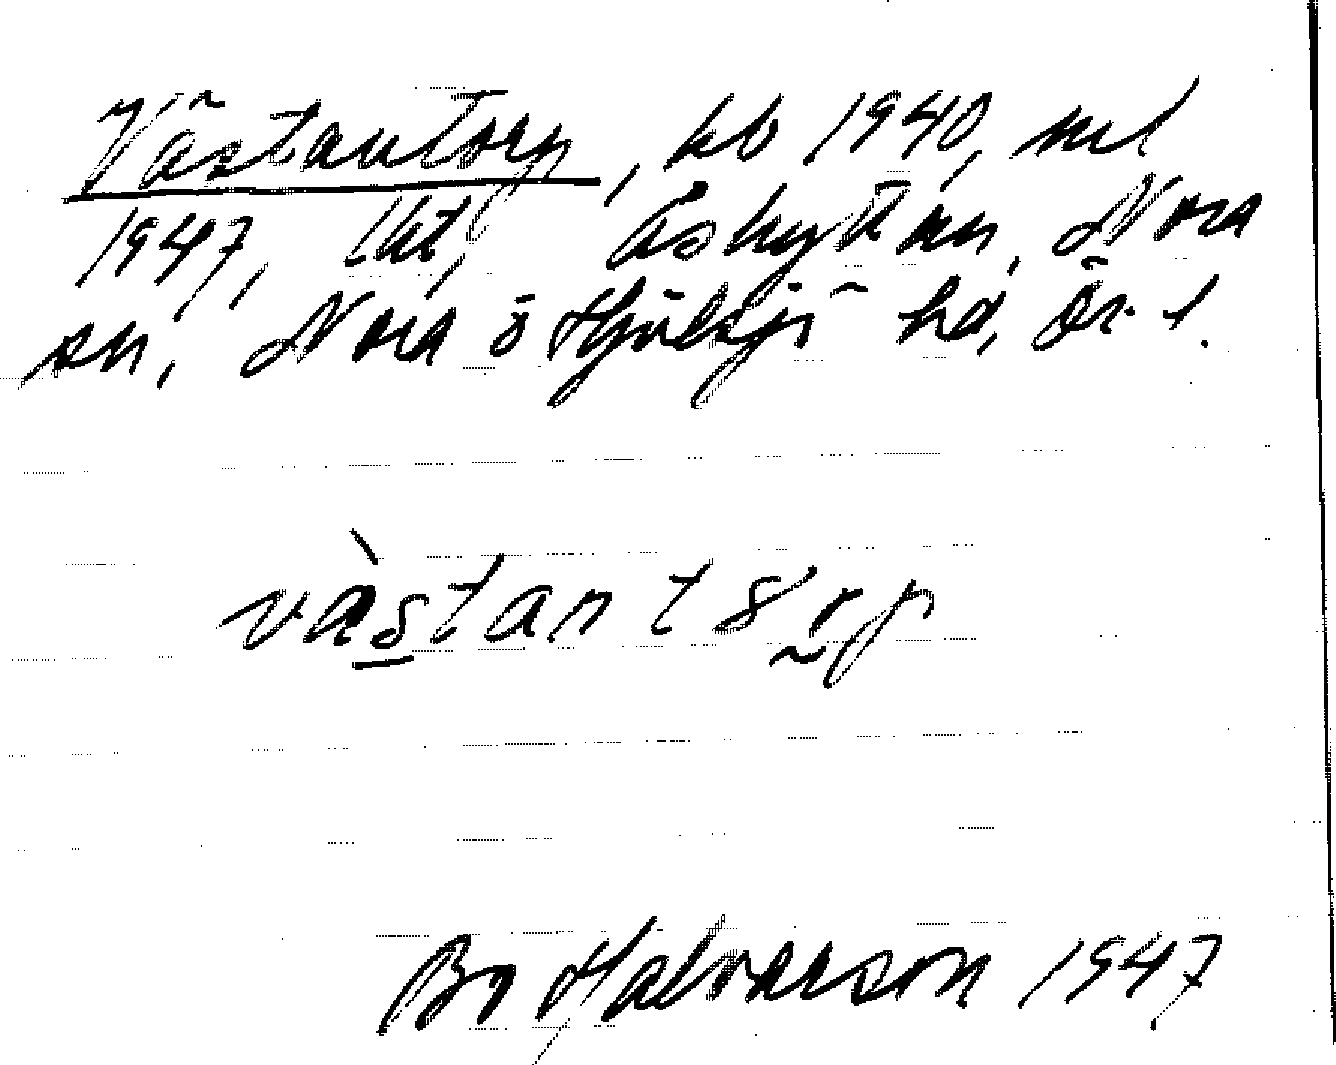 Västantorp, kb 1940, ml
1947, lht, Åshyttan, Nora
sn, Nora o Hjulsjö hd, Ör. l.
västantorp
Bo Halvarson 1947